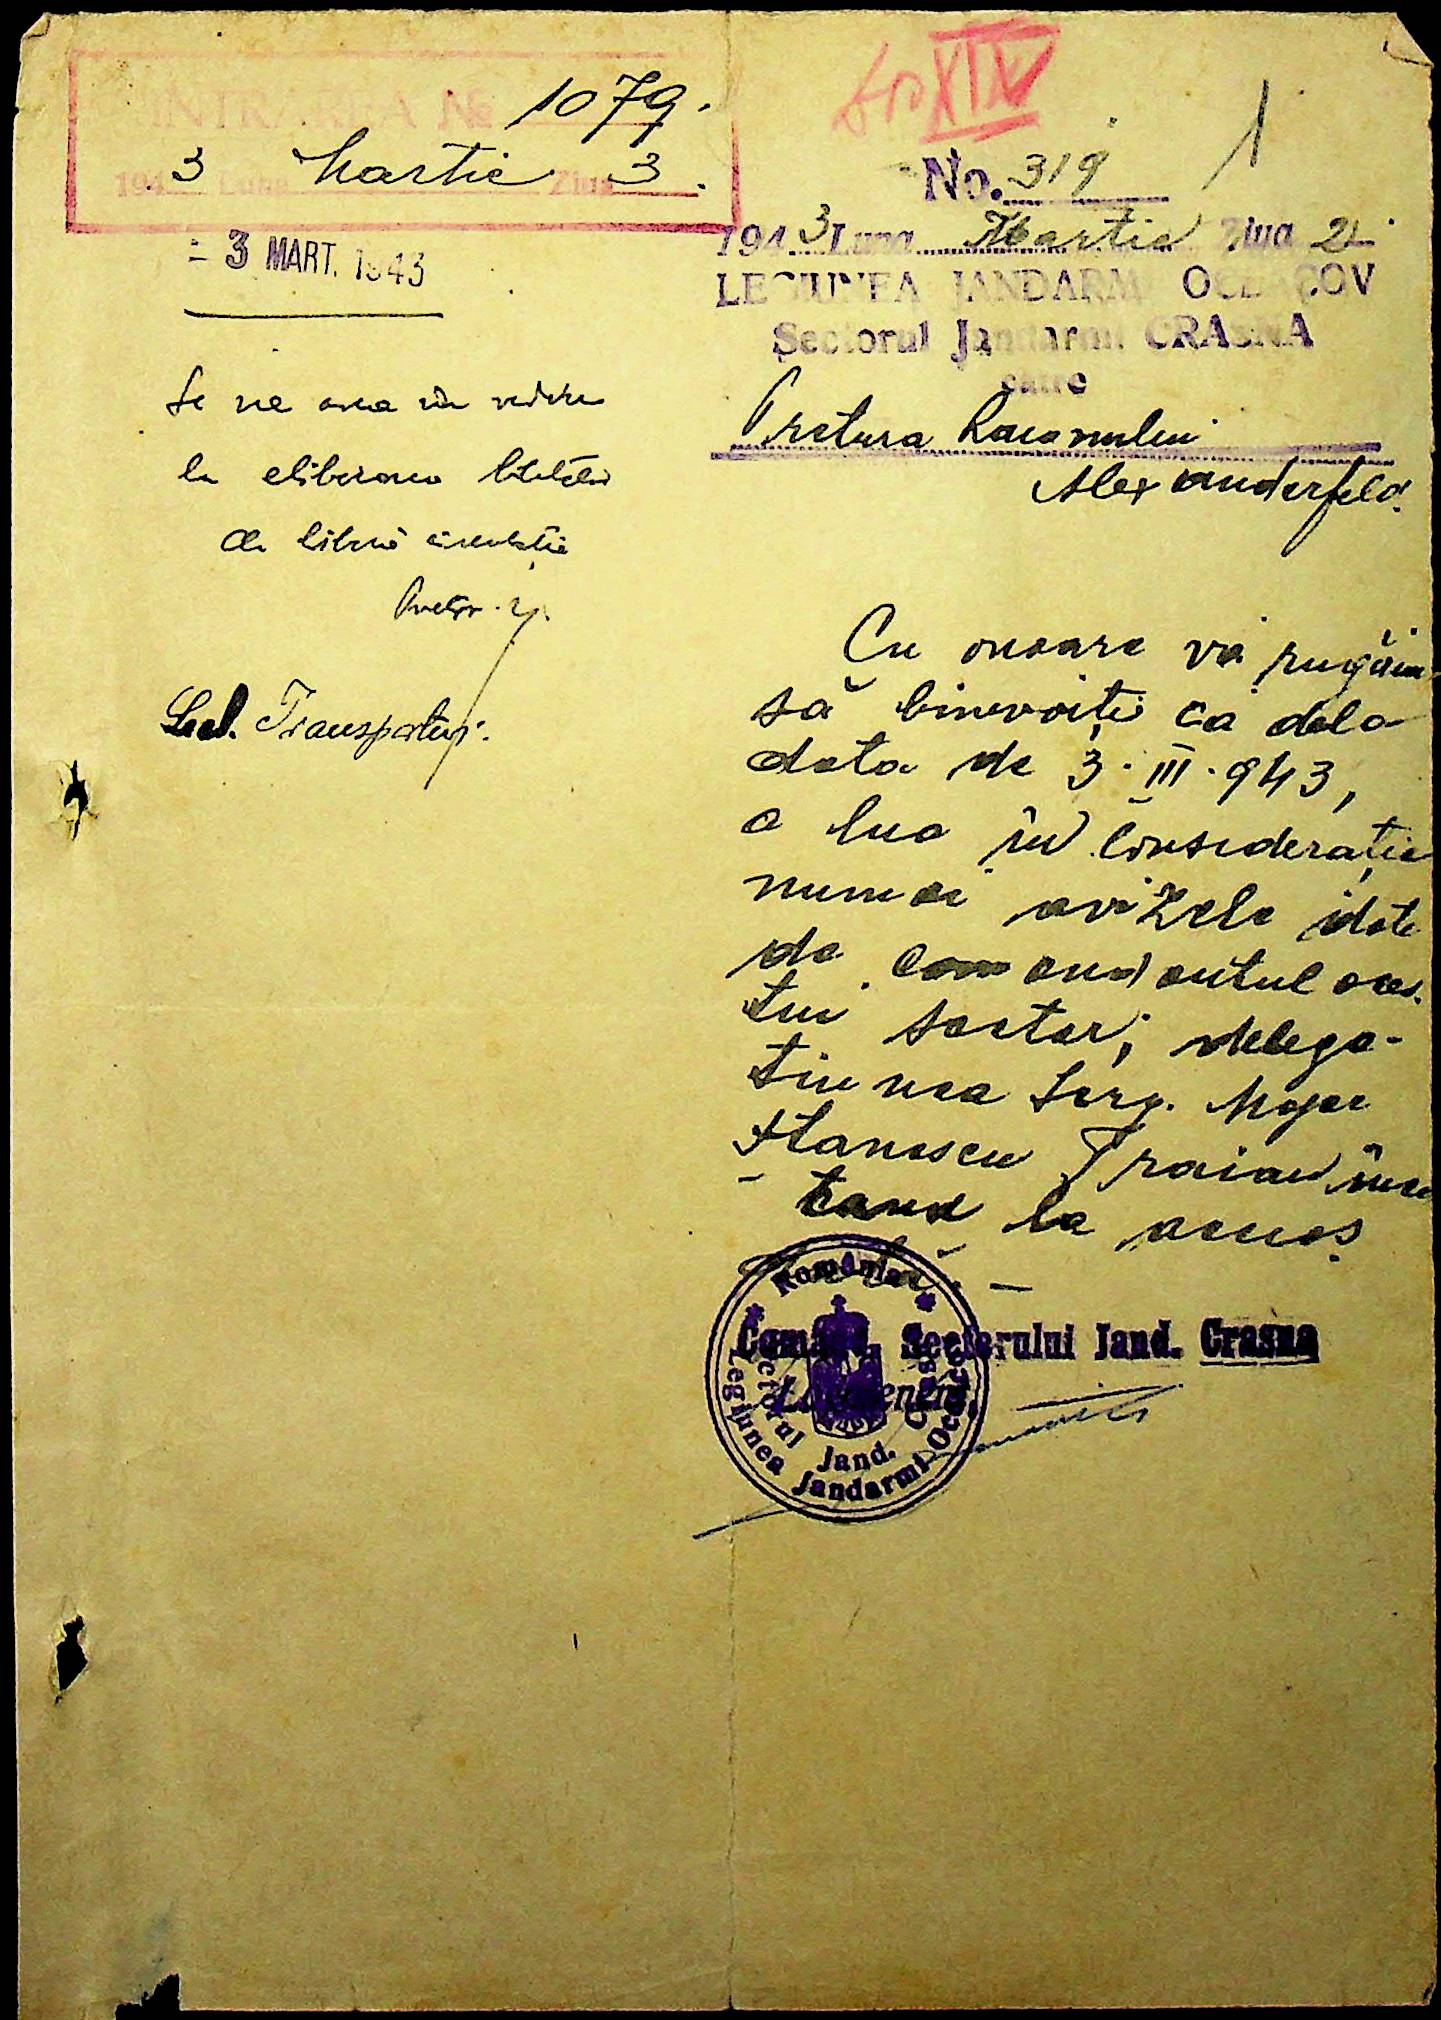 INTRAREA No 1079.
194 3 Luna Martie Ziua 3.
- 3 MART. 1943
Se va avea în vedere
la eliberarea biletelor
de liberă circulație
Pretor
Transporturi.
XIV
1
No. 319
194 3 Luna Martie Ziua 2
LEGIUNEA JANDARMI OCEACOV
Sectorul Jandarmi CRASNA
către
Pretura Raionului
Alexanderfeld.
Cu onoare vă rugăm
să binevoiți ca dela
data de 3.III.943,
a lua în considerație
numai avizele date
de comandantul aces-
tui sector, delega-
țiunea Serg. Major
Stanescu Traian înce
-tand la aceias
Comand. Sectorului Jand. Crasna
Locotenent,
România
Sectorul Jand. Crasna
Legiunea Jandarmi Oceacov